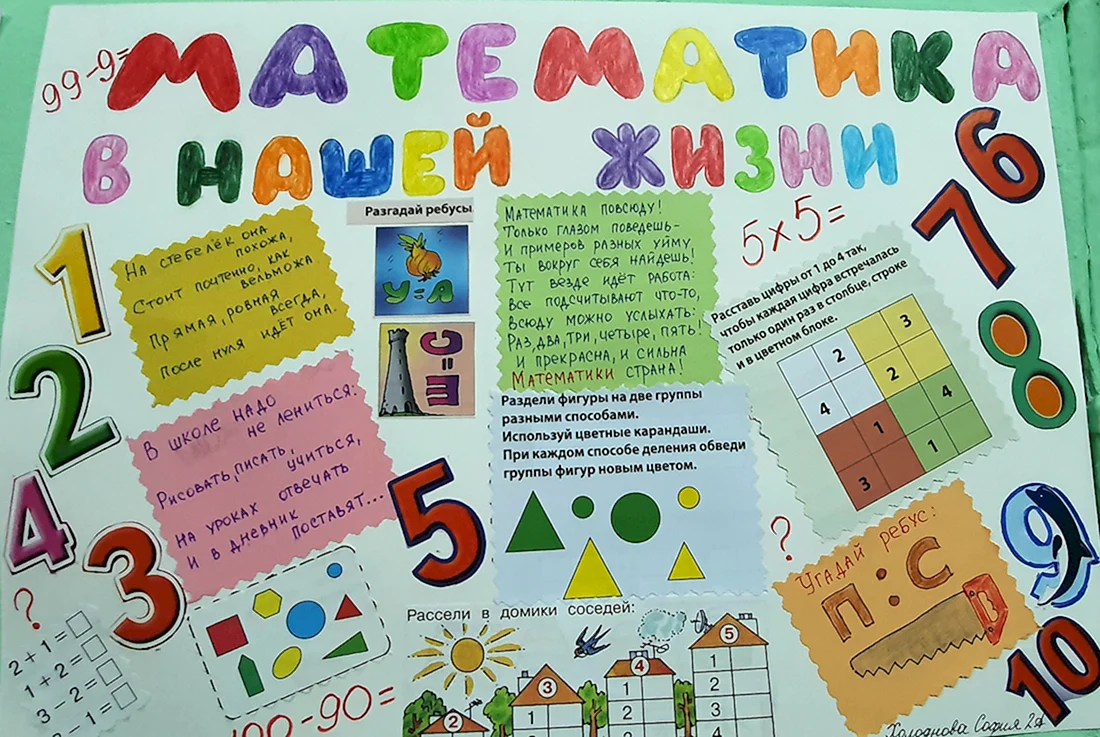 99-9=
МАТЕМАТИКА
В НАШЕЙ ЖИЗНИ
1
2
4
3
На стебелёк она
похожа,
Стоит почтенно, как
вельможа
Прямая, ровная
всегда,
После нуля идёт она.
В школе надо
не лениться:
Рисовать, писать,
учиться,
на уроках отвечать
и в дневник
поставят...
?
2+1=
1+2=
3-2=
-1=
Разгадай ребусы
У=А
Ш=С
5
Математика повсюду!
Только глазом поведешь-
И примеров разных уйму
Ты вокруг себя найдешь!
Тут везде идёт работа:
Все подсчитывают что-то,
Всюду можно услыхать:
Раз, два, три, четыре, пять!
И прекрасна, и сильна
Математики страна!
Раздели фигуры на две группы
разными способами.
Используй цветные карандаши.
При каждом способе деления обведи
группы фигур новым цветом.
00-90=
Рассели в домики соседей:
2
3
1
2
4
1
2
3
5
1
2
3
4
5×5=
6
7
8
9
10
Расставь цифры от 1 до 4 так,
чтобы каждая цифра встречалась
только один раз в столбце, строке
и в цветном блоке.
2 3
4 2
1 4
3 1
?
Угадай ребус:
П:С
В
Холоднова София 2А